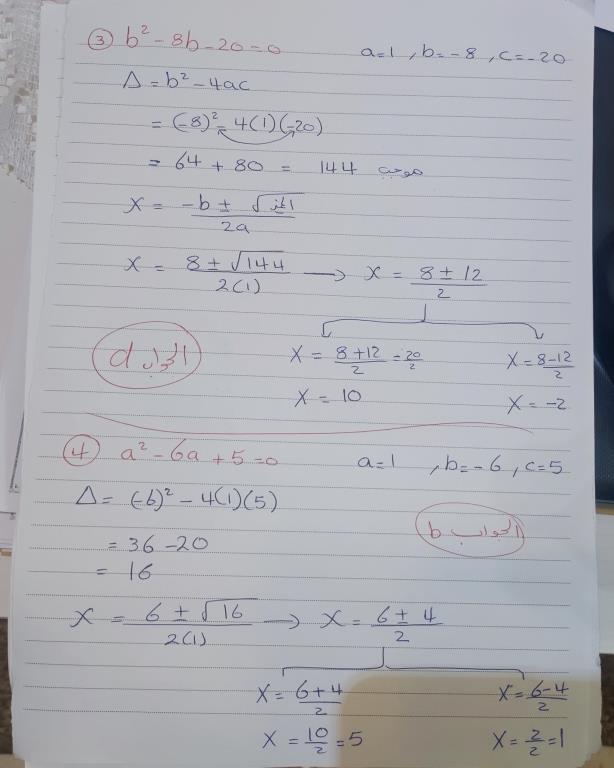 ③ b² - 8b - 20 = 0    a=1 , b=-8 , c=-20
Δ = b² - 4ac
= (-8)² - 4(1)(-20)
= 64 + 80 = 144 موجب
X = (-b ± √المميز) / 2a
X = (8 ± √144) / 2(1) → X = (8 ± 12) / 2
X = (8+12)/2 = 20/2    X = (8-12)/2
الجواب d
X = 10    X = -2
④ a² - 6a + 5 = 0    a=1 , b=-6 , c=5
Δ = (-6)² - 4(1)(5)
الجواب b
= 36 - 20
= 16
X = (6 ± √16) / 2(1) → X = (6 ± 4) / 2
X = (6+4)/2    X = (6-4)/2
X = 10/2 = 5    X = 2/2 = 1